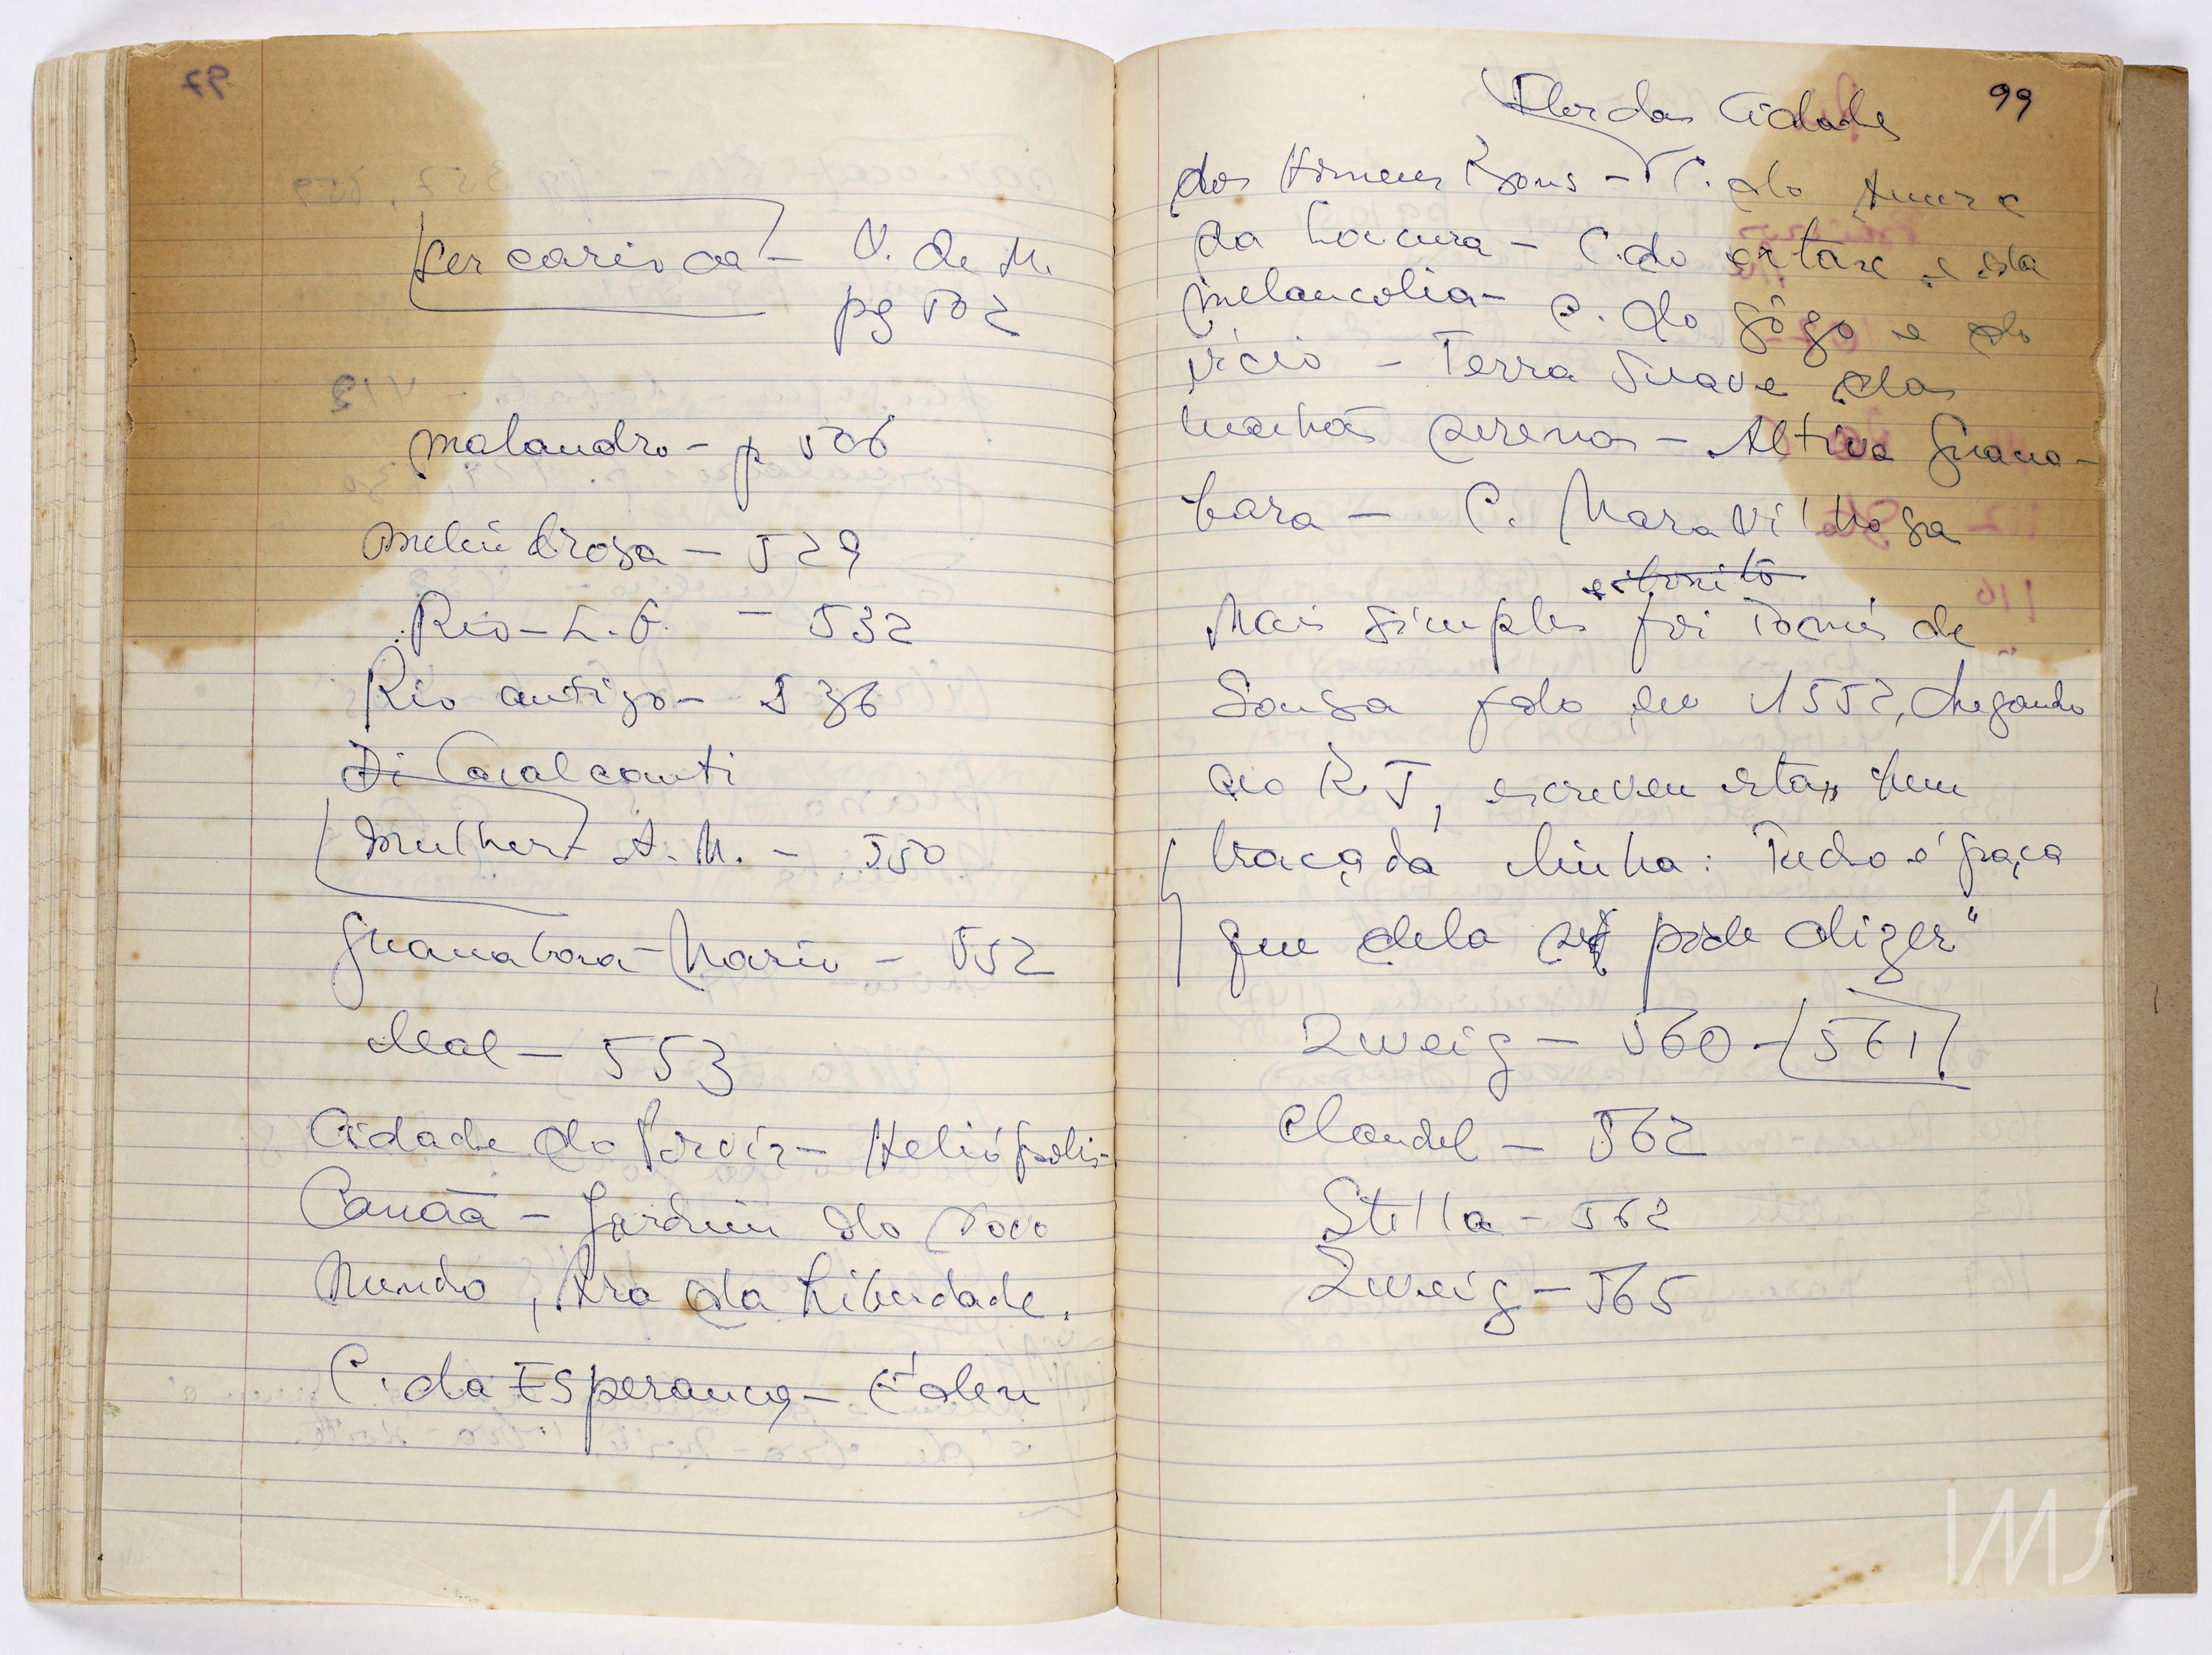 Ser carioca - V. de M.
pg 502
malandro - p 506
melindrosa - 529
Rio - L. G. - 532
Rio antigo - 536
Di Cavalcanti
Mulher A. M. - 550
Guanabara - Mario - 552
Mal - 553
Cidade do Porvir - Heliópolis -
Canaã - Jardim do Novo
Mundo, Ara da Liberdade.
C. da Esperança - Éden
99
Flor das Cidades
dos Homens Bons - C. do Amor e
da Loucura - C. do extase e da
melancolia - C. do Jôgo e do
vício - Terra Suave das
manhãs serenas - Altiva Guana-
bara - C. Maravilhosa
Mais simples foi Tomé de
Sousa q do em 1552, chegando
ao R J, escreveu esta bem
traçada linha: Tudo é graça
que dela se pode dizer"
Zweig - 560 - 561
Claudel - 562
Stella - 562
Zweig - 565
IMS